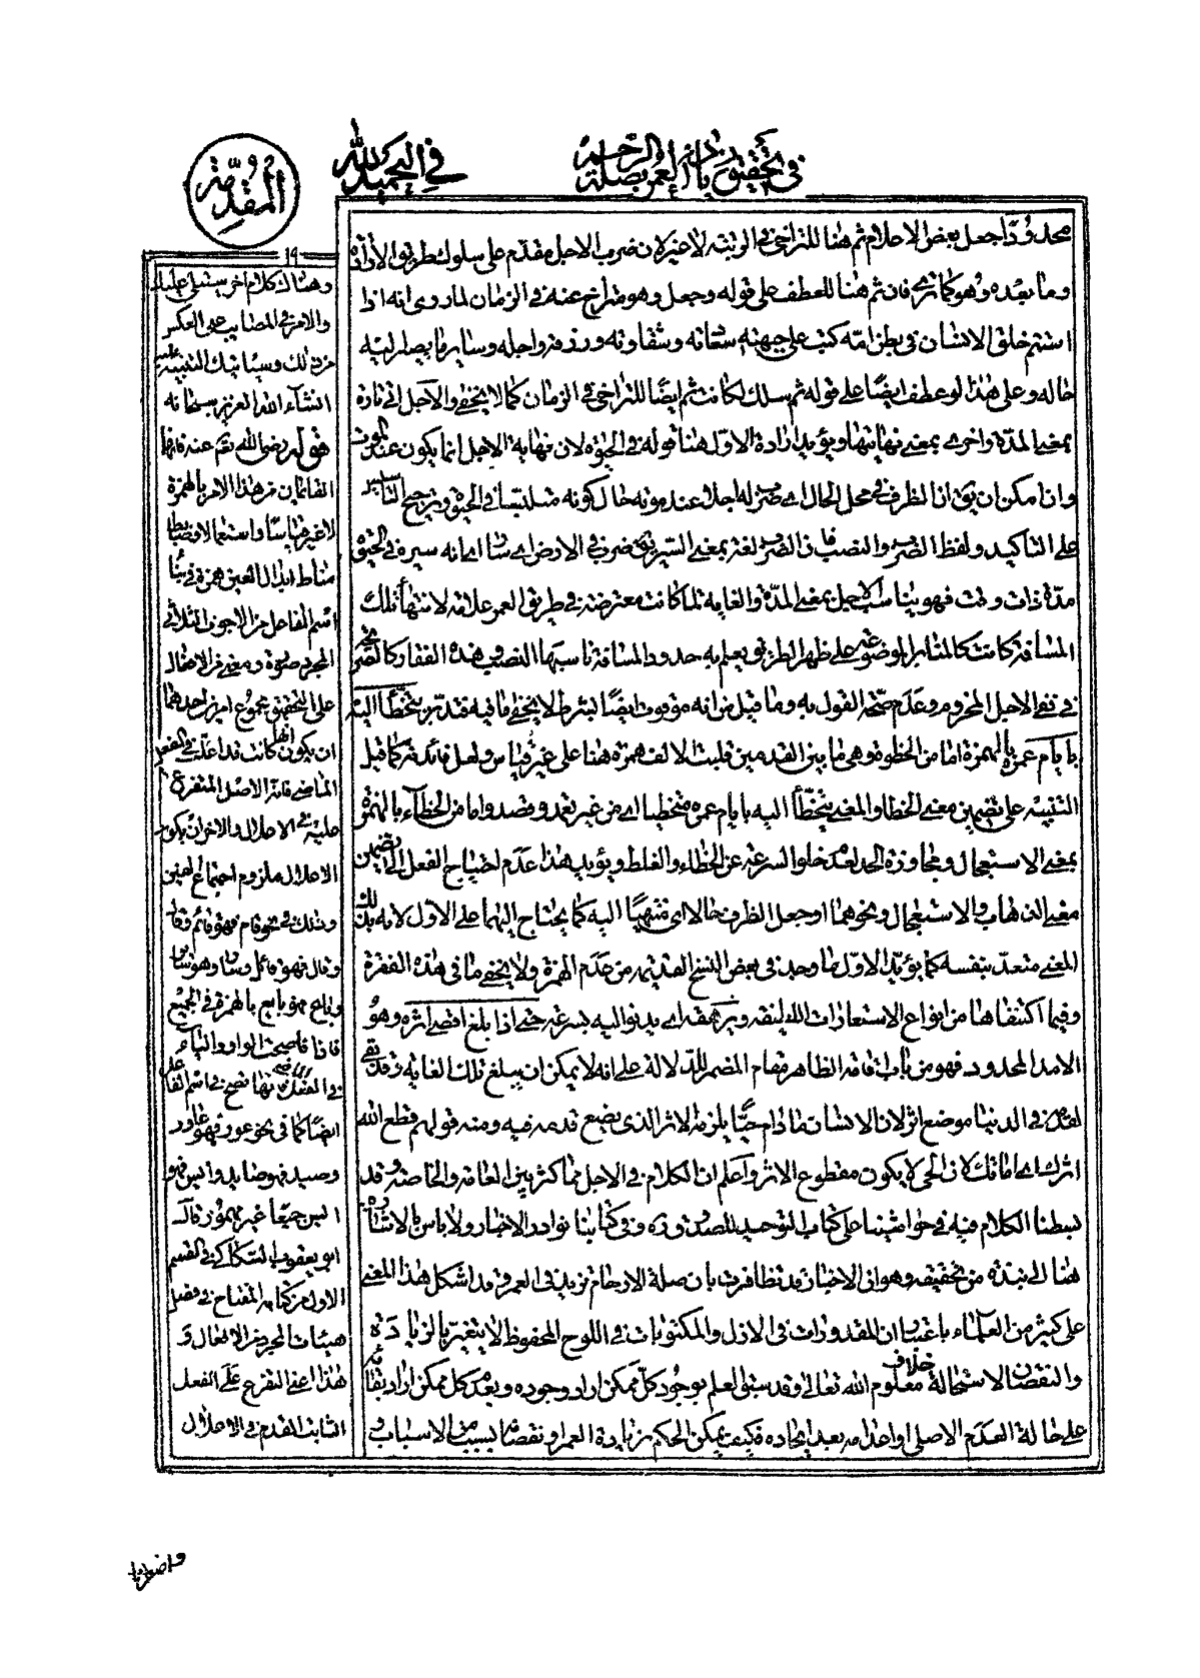 في تحقيق زيادة العمر بصلة الرحم
في التحميد لله
المقدمة
١٩
محدودا جعل بعض الاعلام ثم هنا للتراخي في الرتبة لا غير لان ضرب الاجل مقدم على سلوك طريق الارادة
وما بعده وهو كما ترى فان ثم هنا للعطف على قوله وجعل وهو متراخ عنه في الزمان لما روى انه اذا
استتم خلق الانسان في بطن امه كتب على جبهته سعادته وشقاوته ورزقه واجله وساير ما يصار اليه
حاله وعلى هذا لو عطف ايضا على قوله ثم سلك لكانت ثم ايضا للتراخي في الزمان كما لا يخفى والاجل اتى تارة
بمعنى المدة واخرى بمعنى نهايتها ويؤيد ارادة الاول هنا قوله في الحيوة لان نهاية الاجل انما يكون عند الموت
وان امكن ان يق ان الظرف في محل الحال اى ضرب له اجلا عند موته حال كونه متلبسا في الحيوة وترجيح التاسيس
على التاكيد ولفظ الضرب والنصب فان الضرب لغة بمعنى السير يق ضرب في الارض اى سار
مدة ذات وقت فهو يناسب الاجل بمعنى المدة والغاية لما كانت معترضة في طريق العمر علامة لانتهاء تلك
المسافة كانت كالمنار الموضوعة على ظهر الطريق ويعلم به حدود المسافة ناسبها النصب وهذه الفقار كالصريح
في نفى الاجل المخروم وعدم صحة القول به وما قيل من انه موقوت ايضا بشرط لا يخفى ما فيه قد ترى يتخطا اليه
بايام عمره بالهمزة اما من الخطوة وهي ما بين القدمين قلبت الالف همزة هنا على غير قياس ولعل فائدته كما قيل
التنبيه على تضمين معنى الخطا والمعنى يتخطأ اليه بايام عمره متخطيا اى من غير تعمد وقصد واما من الخطاء بالهمزة
بمعنى الاستعجال ومجاوزة الحد لعدم خلو السرعة عن الخطاء والغلط ويؤيد هذا عدم احتياج الفعل الى تضمين
معنى الذهاب والاستعجال ونحوهما او جعل الظرف حالا اى منتهيا اليه كما يحتاج اليهما على الاول لانه بذلك
المعنى متعد بنفسه كما يؤيد الاول ما وجد في بعض النسخ القديمة من عدم الهمزة ولا يخفى ما في هذه الفقرة
وفيما اكتنفاها من انواع الاستعارات اللايقة ويرهقه اى يدنو اليه بسرعة حتى اذا بلغ اقصى اثره وهو
الامد المحدود فهو من باب اقامة الظاهر مقام المضمر للدلالة على انه لا يمكن ان يبلغ تلك الغاية وقد بقى
لقدمه في الدنيا موضع اثر لان الانسان ما دام حيا يلزمه الاثر الذى يضع قدمه فيه ومنه قولهم قطع الله
اثرك اى اماتك لان الحي لا يكون مقطوع الاثر واعلم ان الكلام في الاجل مما كثر بين العامة والخاصة وقد
بسطنا الكلام فيه في حواشينا على كتاب التوحيد للصدوق ره وفي كتابنا نوادر الاخبار ولا باس بالاشارة
هنا الى نبذة من تحقيقه وهو ان الاخبار قد تظافرت بان صلة الارحام تزيد في العمر وقد اشكل هذا المعنى
على كثير من العلماء باعتبار ان المقدورات في الازل والمكتوبات في اللوح المحفوظ لا يتغير بالزيادة
والنقصان لاستحالة خلاف معلوم الله تعالى وقد سبق العلم بوجود كل ممكن اراد وجوده وبعدم كل ممكن اراد بقاءه
على حالة العدم الاصلى او اعدامه بعد ايجاده فكيف يمكن الحكم بزيادة العمر او نقصانه بسبب من الاسباب و
وهناك كلام اخر يستنبط عليك
والامر في المصايب على العكس
من ذلك وسياتيك التنبيه عليه
انشاء الله العزيز سبحانه
قوله رضى الله تعم عنه قايما
القائمان من هذا الامر بالهمزة
لا غير قياسا واستعمالا وضابط
مناط ابدال العين همزة في بناء
اسم الفاعل من الاجوف الثلاثي
المجرد صورة ومعنى من الامثال
على التحقيق مجموع امرين احدهما
ان يكون انها كانت قد اعلت في الفعل
الماضي فانه الاصل المتفرع
عليه في الاعلال والاخر ان يكون
الاعلال ملزوم اجتماع الفين
وذلك في نحو قام فهو قائم وقا
وقال فهو قائل وسار فهو سائر
وباع فهو بايع بالهمزة في الجميع
فاذا ما صحت الواو والياء
في الفعل فانها تصح في اسم الفاعل
ايضا كما في نحو عور فهو عاور
وصيد فهو صايد وايس فهو
ايس جميعا غير مهموز قال
ابو يعقوب السكاكي في القسم
الاول من كتابه المفتاح في فصل
هيئات المجرد من الافعال و
هذا اعنى التفرع على الفعل
الثابت القدم في الاعلال
واضرابها